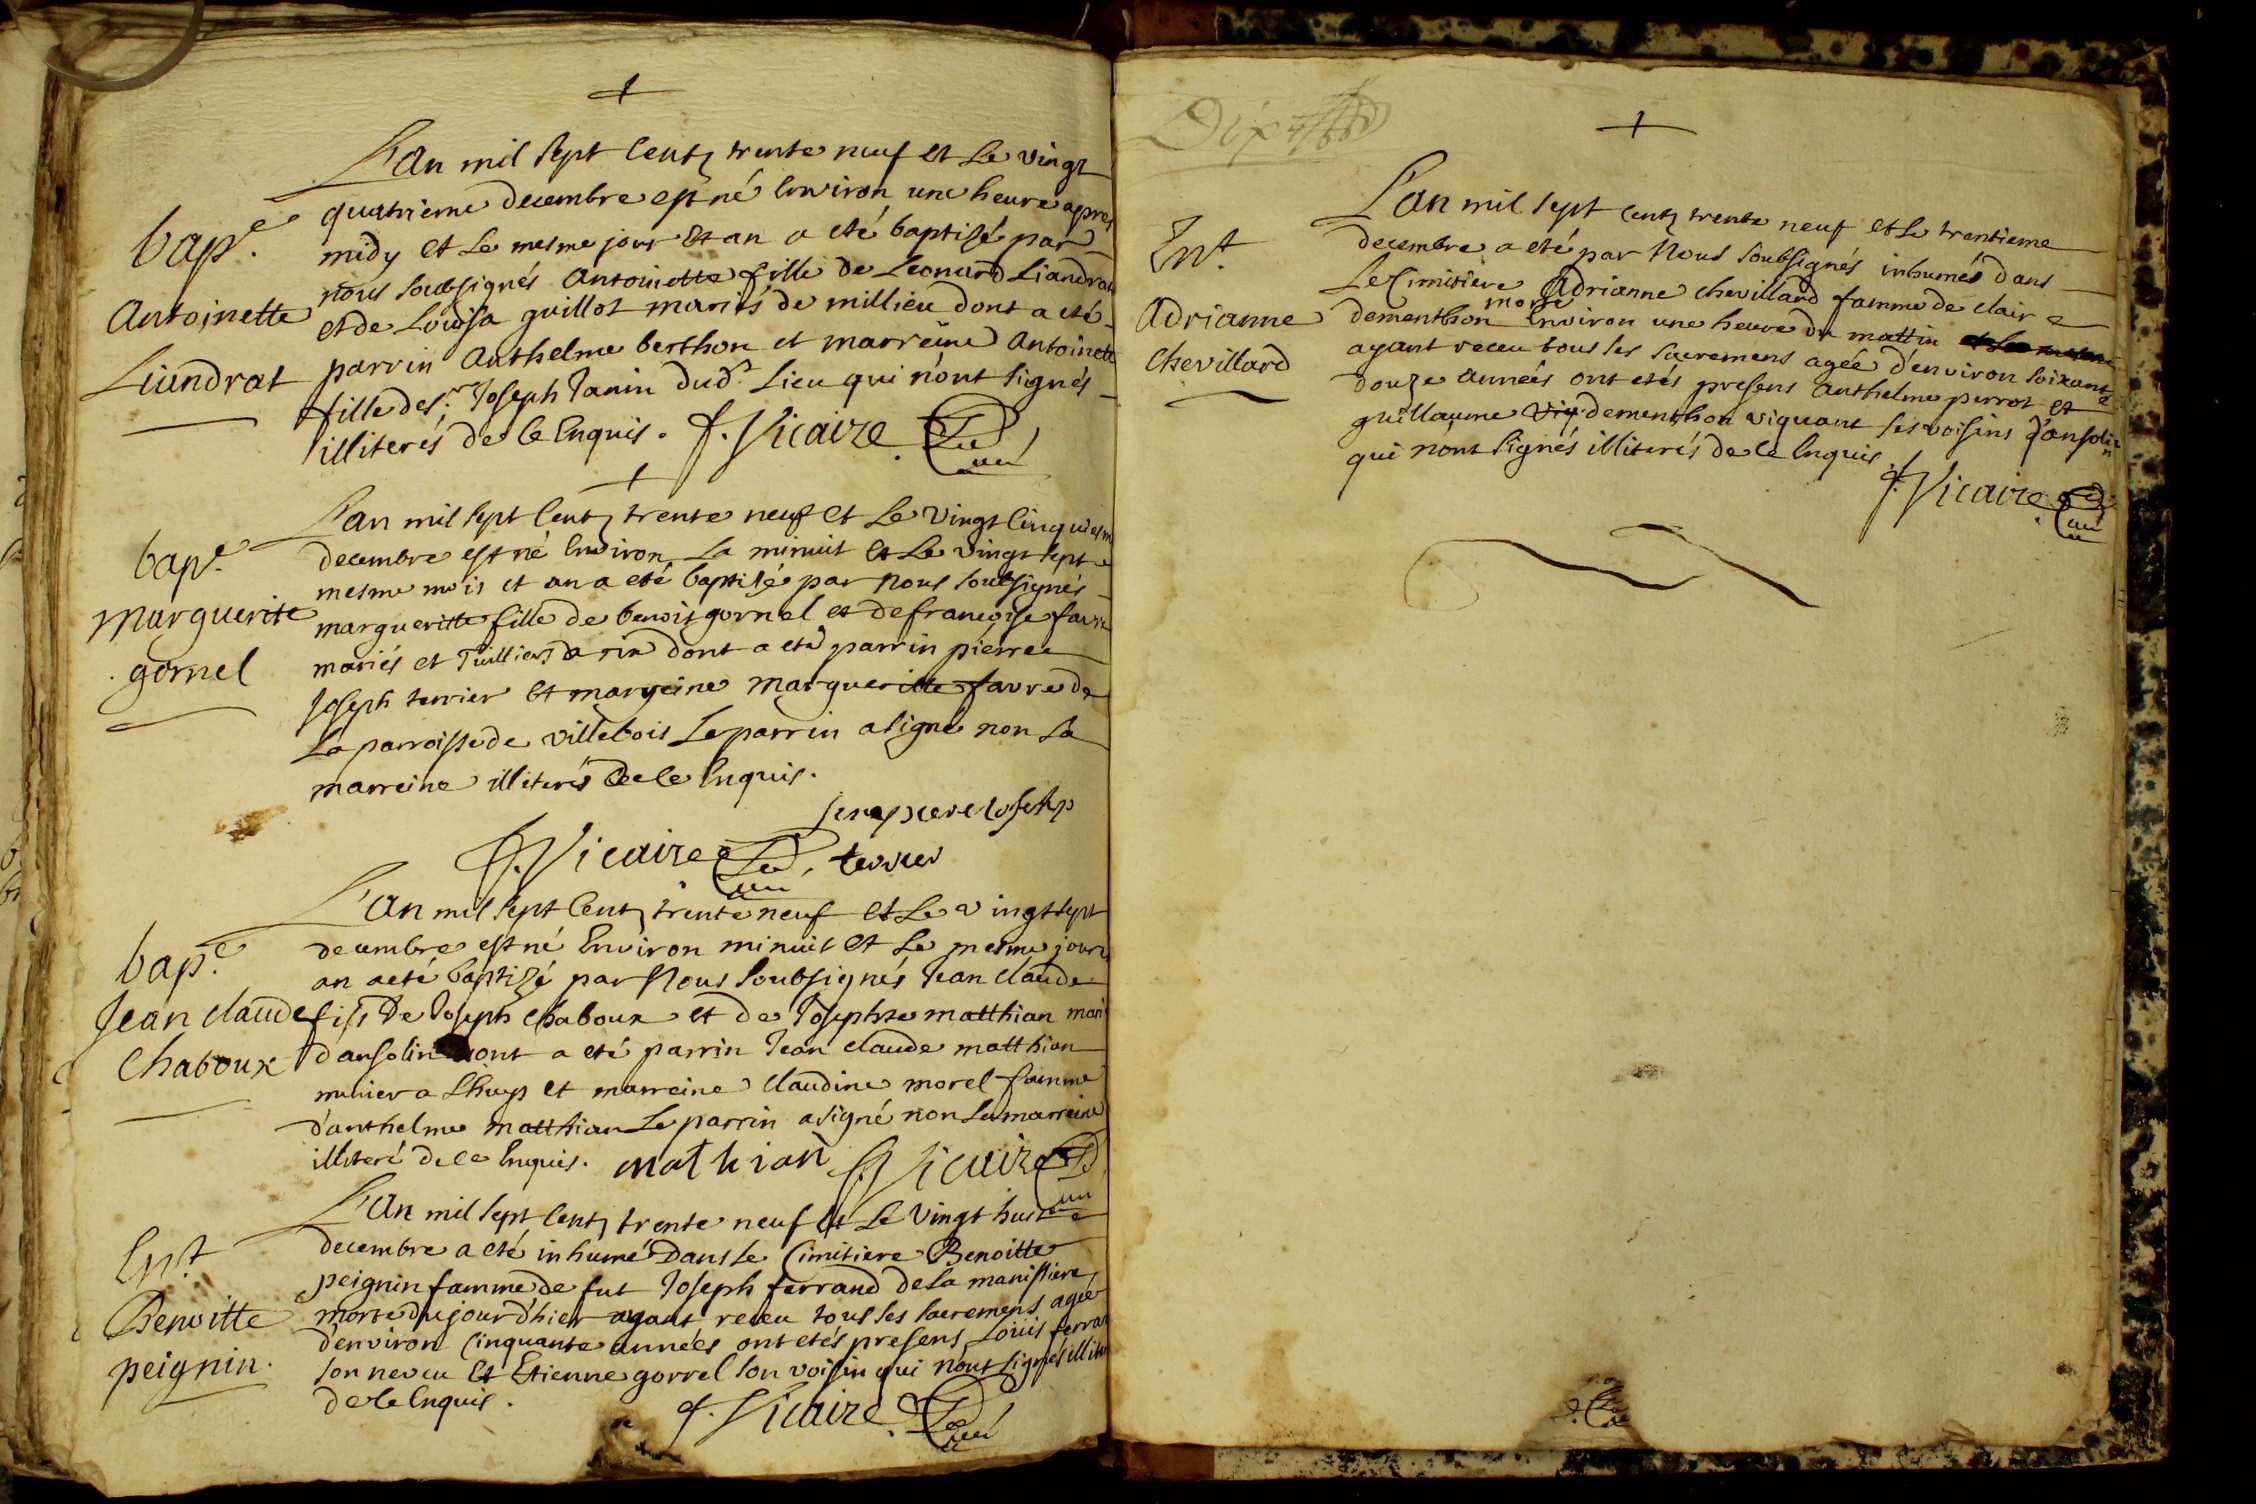 L'an mil sept cents trente neuf et le vingt
bap.e
quatrieme decembre est né environ une heure apres
midy et le mesme jour et an a eté baptizé par
nous soubsignés Antoinette fille de Leonard Liandrat
Antoinette
et de Louisa guillot mariés de millieu dont a eté
parrin Anthelme berthon et marreine Antoinette
Liandrat
fille de s.r Joseph Janin dud.t Lieu qui n'ont signés
illiterés de ce enquis. f. Vicaire Curé
L'an mil sept cents trente neuf et le vingt cinquiesme
bap.e
decembre est né environ la minuit et le vingt sept
mesme mois et an a eté baptizé par nous soubsignés
Marguerite
marguerite fille de benoit gornel et de francoise favre
mariés et dont a eté parrin pierre
gornel
Joseph terrier et marreine Marguerite favre de
la parroisse de villebois Le parrin a signé non la
marreine illiterés de ce enquis.
pierre Joseph
f. Vicaire Curé terrier
L'an mil sept cents trente neuf et le vingt sept
bap.e
decembre est né environ minuit et le mesme jour
an a eté baptizé par Nous soubsignés Jean claude
Jean claude
fils de Joseph Chaboux et de Josephte matthian mari
Chaboux
d'ansolin dont a eté parrin Jean claude matthian
a Lhuys et marreine claudine morel famme
d'anthelme matthian Le parrin a signé non la marreine
illiteré de ce enquis. mathian f. Vicaire Curé
L'an mil sept cents trente neuf et le vingt huit
Ent
decembre a eté inhumé dans le Cimitiere Benoitte
peignin famme de fut Joseph ferrand de la manissiere
Benoitte
morte du jourd'hier ayant receu tous les sacremens agée
d'environ cinquante années ont etés presens Loüis ferran
peignin.
son neveu et Etienne gorrel son voisin qui n'ont signés illite
de ce enquis.
f. Vicaire Curé
L'an mil sept cents trente neuf et le trentieme
Ent.
decembre a eté par Nous soubsignés inhumés dans
Le Cimitiere Adrianne chevillard famme de clair
Adrianne
morte
dementhon environ une heure du mattin et le mesme
chevillard
ayant receu tous les sacremens agée d'environ soixante
douze années ont etés presens Anthelme perrot et
guillaume dementhon viquant ses voisins d'ansolin
qui n'ont signés illiterés de ce enquis
f. Vicaire Curé